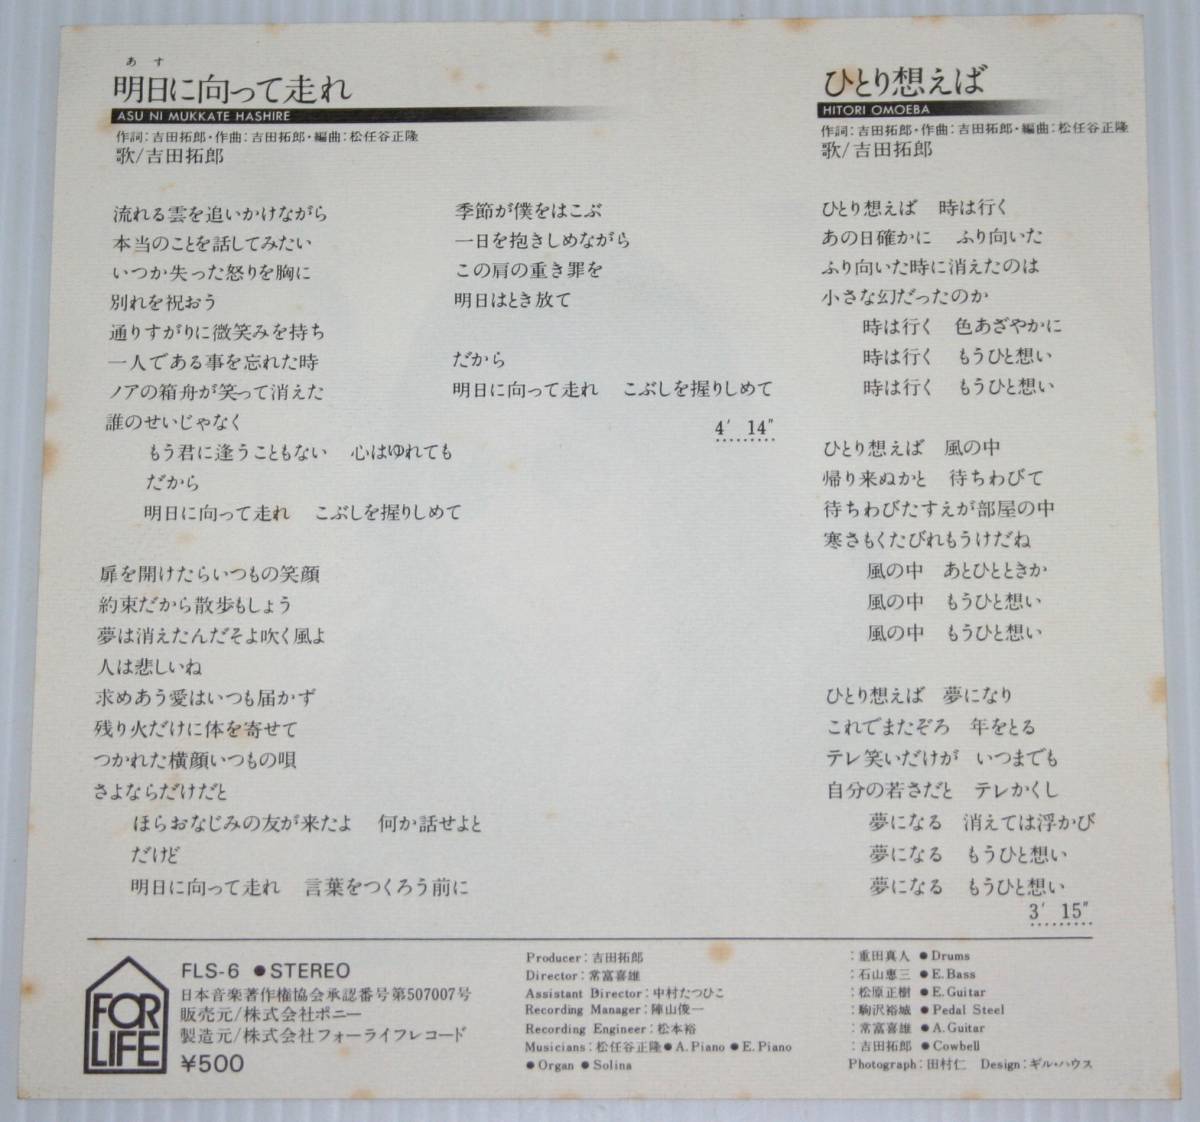 あす
明日に向って走れ
ASU NI MUKKATE HASHIRE
作詞:吉田拓郎・作曲:吉田拓郎・編曲:松任谷正隆
歌/吉田拓郎
流れる雲を追いかけながら
本当のことを話してみたい
いつか失った怒りを胸に
別れを祝おう
通りすがりに微笑みを持ち
一人である事を忘れた時
ノアの箱舟が笑って消えた
誰のせいじゃなく
もう君に逢うこともない 心はゆれても
だから
明日に向って走れ こぶしを握りしめて
扉を開けたらいつもの笑顔
約束だから散歩もしょう
夢は消えたんだそよ吹く風よ
人は悲しいね
求めあう愛はいつも届かず
残り火だけに体を寄せて
つかれた横顔いつもの唄
さよならだけだと
ほらおなじみの友が来たよ 何か話せよと
だけど
明日に向って走れ 言葉をつくろう前に
季節が僕をはこぶ
一日を抱きしめながら
この肩の重き罪を
明日はとき放て
だから
明日に向って走れ こぶしを握りしめて
4′ 14″
ひとり想えば
HITORI OMOEBA
作詞:吉田拓郎・作曲:吉田拓郎・編曲:松任谷正隆
歌/吉田拓郎
ひとり想えば 時は行く
あの日確かに ふり向いた
ふり向いた時に消えたのは
小さな幻だったのか
時は行く 色あざやかに
時は行く もうひと想い
時は行く もうひと想い
ひとり想えば 風の中
帰り来ぬかと 待ちわびて
待ちわびたすえが部屋の中
寒さもくたびれもうけだね
風の中 あとひとときか
風の中 もうひと想い
風の中 もうひと想い
ひとり想えば 夢になり
これでまたぞろ 年をとる
テレ笑いだけが いつまでも
自分の若さだと テレかくし
夢になる 消えては浮かび
夢になる もうひと想い
夢になる もうひと想い
3′ 15″
FOR
LIFE
FLS-6 ●STEREO
日本音楽著作権協会承認番号第507007号
販売元/株式会社ポニー
製造元/株式会社フォーライフレコード
¥500
Producer:吉田拓郎
Director:常富喜雄
Assistant Director:中村たつひこ
Recording Manager:陣山俊一
Recording Engineer:松本裕
Musicians:松任谷正隆●A.Piano●E.Piano
●Organ●Solina
:重田真人●Drums
:石山恵三●E.Bass
:松原正樹●E.Guitar
:駒沢裕城●Pedal Steel
:常富喜雄●A.Guitar
:吉田拓郎●Cowbell
Photograph:田村仁 Design:ギル・ハウス